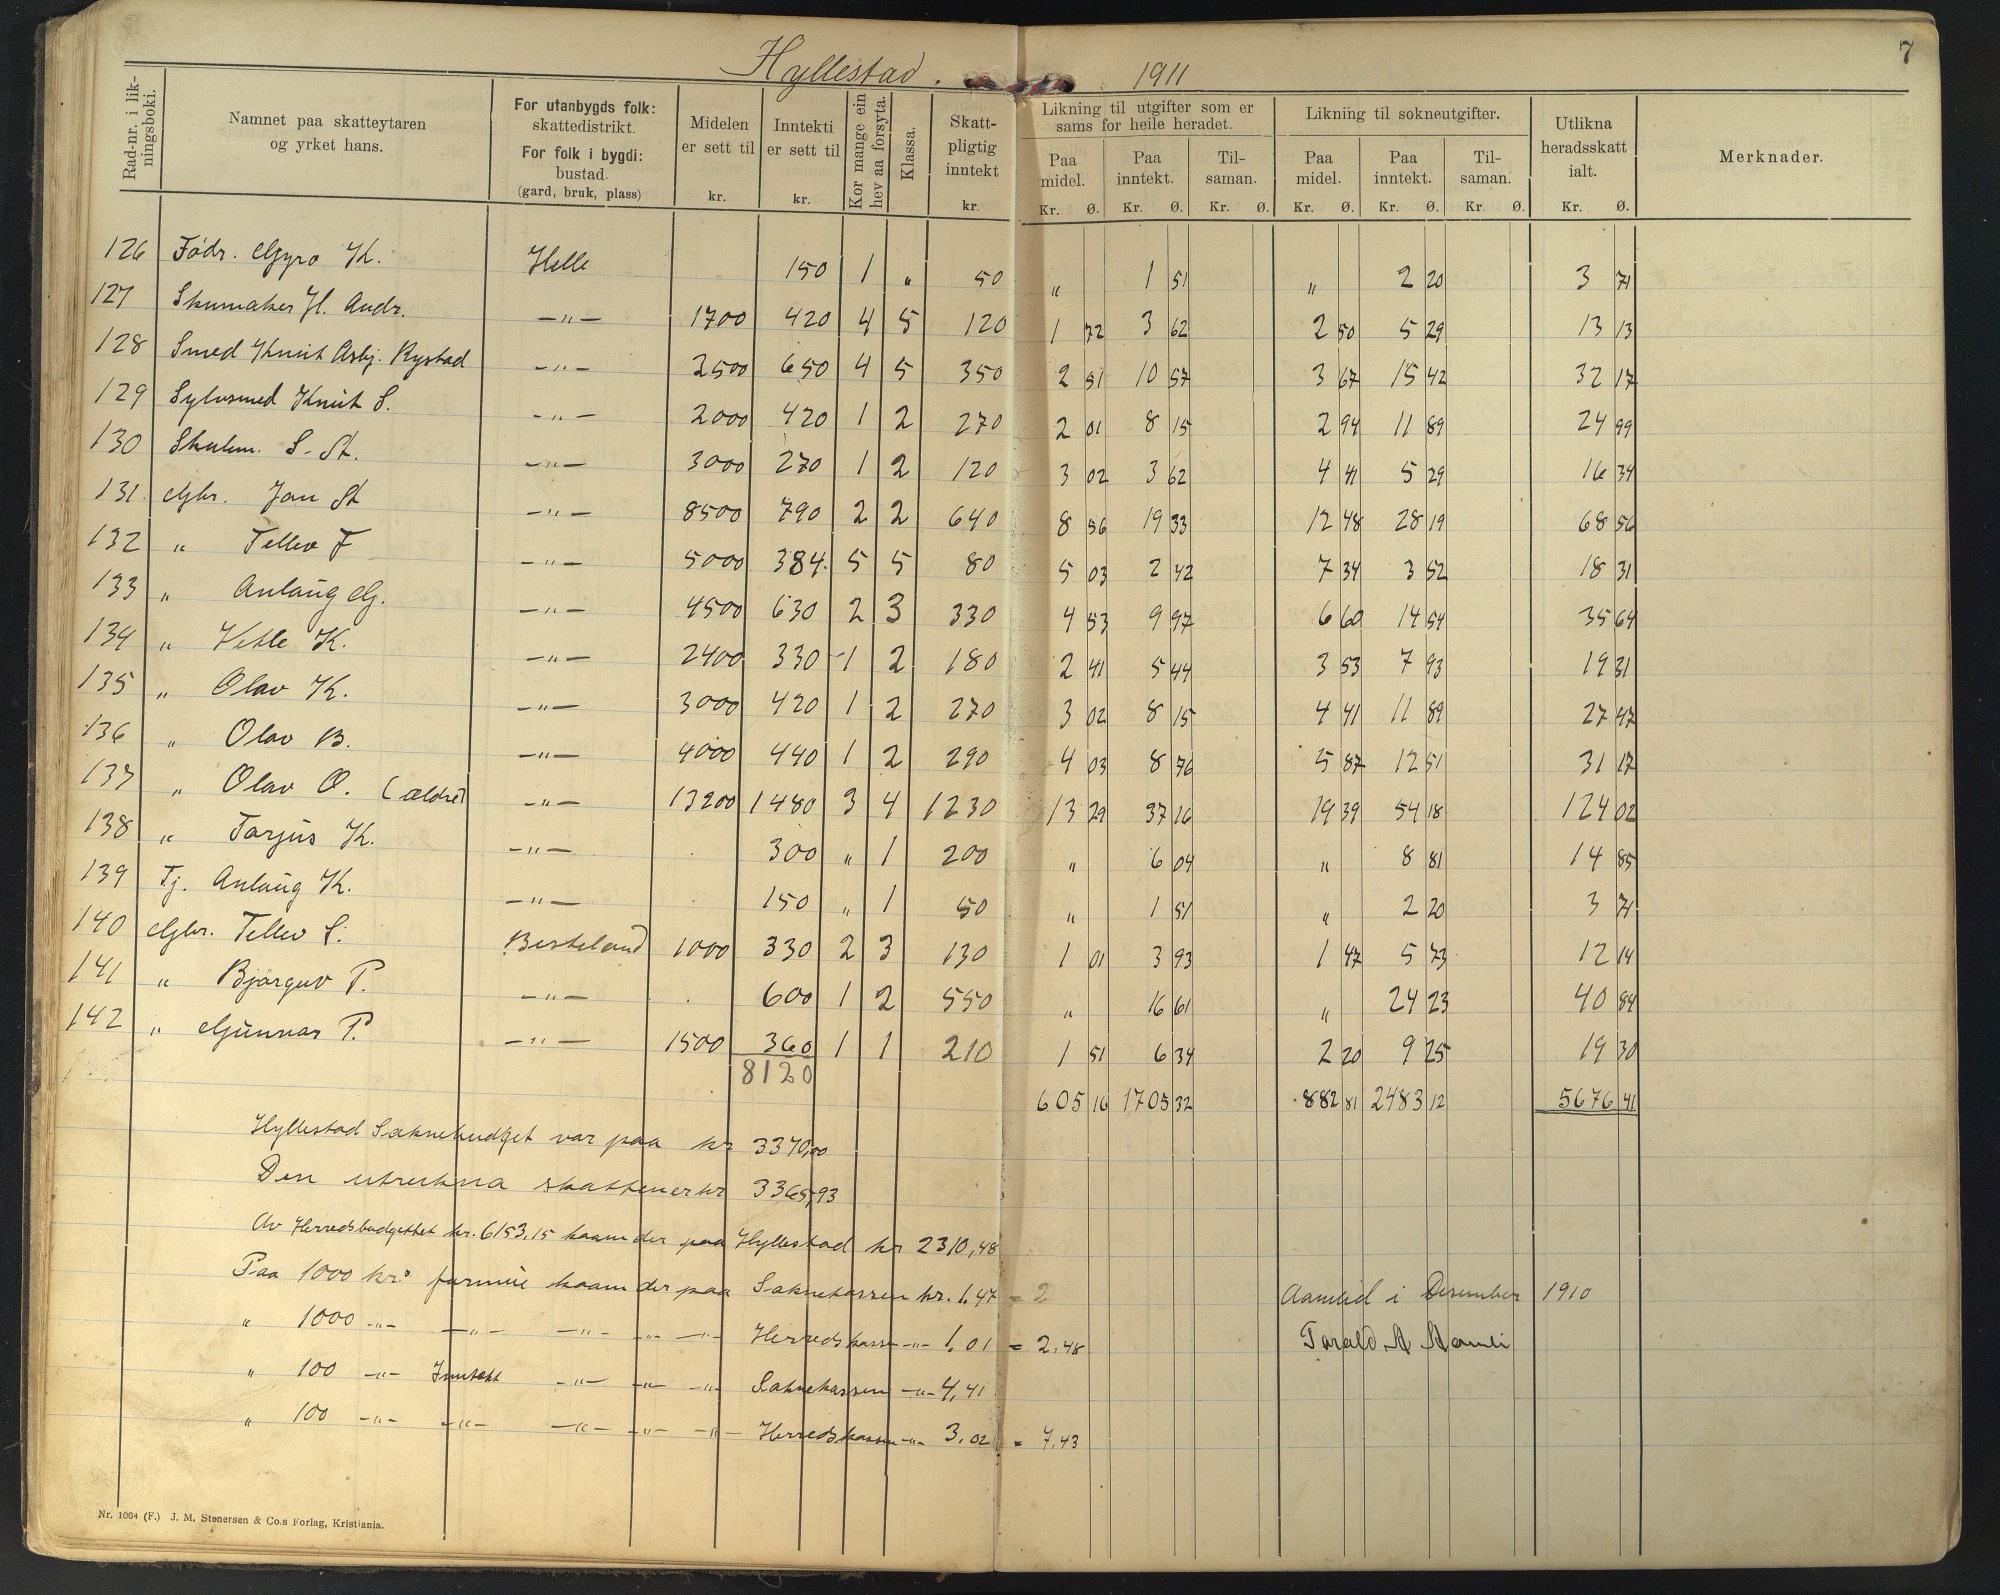 Hyllestad. 1911 7
Rad-nr. i likningsboki. Namnet paa skatteytaren og yrket hans. For utanbygds folk: skattedistrikt. For folk i bygdi: bustad. (gard, bruk, plass) Midelen er sett til kr. Inntekti er sett til kr. Kor mange ein hev aa forsyta. Klassa. Skattpligtig inntekt kr. Likning til utgifter som er sams for heile heradet. Paa midel. Kr. Ø. Paa inntekt. Kr. Ø. Tilsaman. Kr. Ø. Likning til sokneutgifter. Paa midel. Kr. Ø. Paa inntekt. Kr. Ø. Tilsaman. Kr. Ø. Utlikna heradsskatt ialt. Kr. Ø. Merknader.
126 Födr. Gyro K. Helle 150 1 " 50 " 1 51 " 2 20 3 71
127 Skumaker H. Andr. —"— 1700 420 4 5 120 1 72 3 62 2 50 5 29 13 13
128 Smed Knut Asbj. Rystad —"— 2500 650 4 5 350 2 51 10 57 3 67 15 42 32 17
129 Sylvsmed Knut S. —"— 2000 420 1 2 270 2 01 8 15 2 94 11 89 24 99
130 Skulem. S. St. —"— 3000 270 1 2 120 3 02 3 62 4 41 5 29 16 34
131 Gbr. Jon St —"— 8500 790 2 2 640 8 56 19 33 12 48 28 19 68 56
132 " Tellev F —"— 5000 384 5 5 80 5 03 2 42 7 34 3 52 18 31
133 " Anlaug G. —"— 4500 630 2 3 330 4 53 9 97 6 60 14 54 35 64
134 " Vetle K. —"— 2400 330 1 2 180 2 41 5 44 3 53 7 93 19 31
135 " Olav K. —"— 3000 420 1 2 270 3 02 8 15 4 41 11 89 27 47
136 " Olav B. —"— 4000 440 1 2 290 4 03 8 76 5 87 12 51 31 17
137 " Olav O. (ældre) —"— 13200 1480 3 4 1230 13 29 37 16 19 39 54 18 124 02
138 " Torjus K. —"— 300 " 1 200 " 6 04 " 8 81 14 85
139 Tj. Anlaug K. —"— 150 " 1 50 " 1 51 " 2 20 3 71
140 Gbr. Tellev S. Besteland 1000 330 2 3 130 1 01 3 93 1 47 5 73 12 14
141 " Bjørguv P. —"— 600 1 2 550 " 16 61 " 24 23 40 84
142 " Gunnar P. —"— 1500 360 1 1 210 1 51 6 34 2 20 9 25 19 30
8120
605 16 1705 32 882 81 2483 12 5676 41
Hyllestad Soknebudget var paa kr 3370,00
Den utrekna skatten er kr 3365,93
Av Herredsbudgettet kr. 6153.15 kaam der paa Hyllestad kr 2310,48
Paa 1000 kr. formue kaam der paa Soknekassen kr. 1,47 = 2
" 1000 -"- —"— —"— -"- —"— Herredskassen -"- 1,01 = 2,48
" 100 -"- Inntekt —"— -"- -"- Soknekassen -"- 4,41
" 100 -"- -"- —"— -"- -"- Herredskassen -"- 3,02 = 7,43
Aamlid i Desember 1910
Torald A Aamli
Nr. 1004 (F.) J. M. Stenersen & Co.s Forlag, Kristiania.